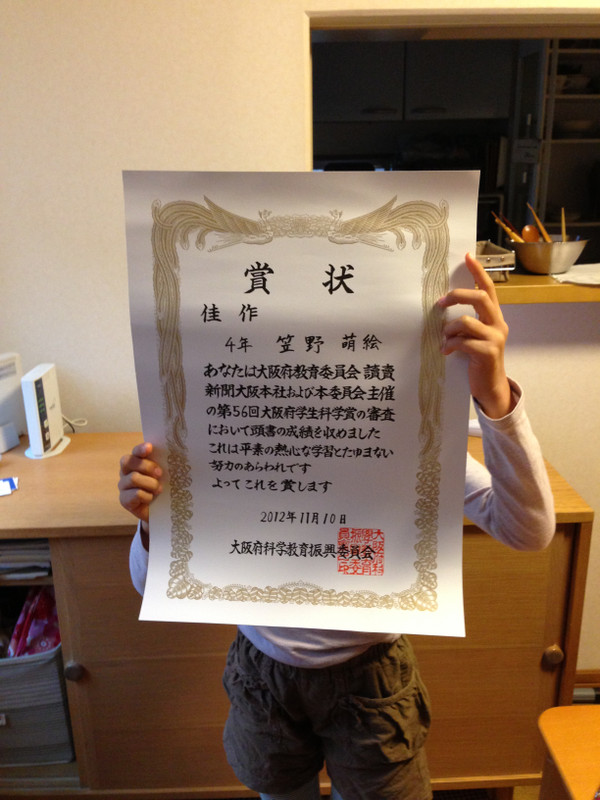 賞状
佳作
4年 笠野 萌絵
あなたは大阪府教育委員会 読賣
新聞大阪本社および本委員会主催
の第56回大阪府学生科学賞の審査
において頭書の成績を収めました
これは平素の熱心な学習とたゆまない
努力のあらわれです
よってこれを賞します
2012年11月10日
大阪府科学教育振興委員会